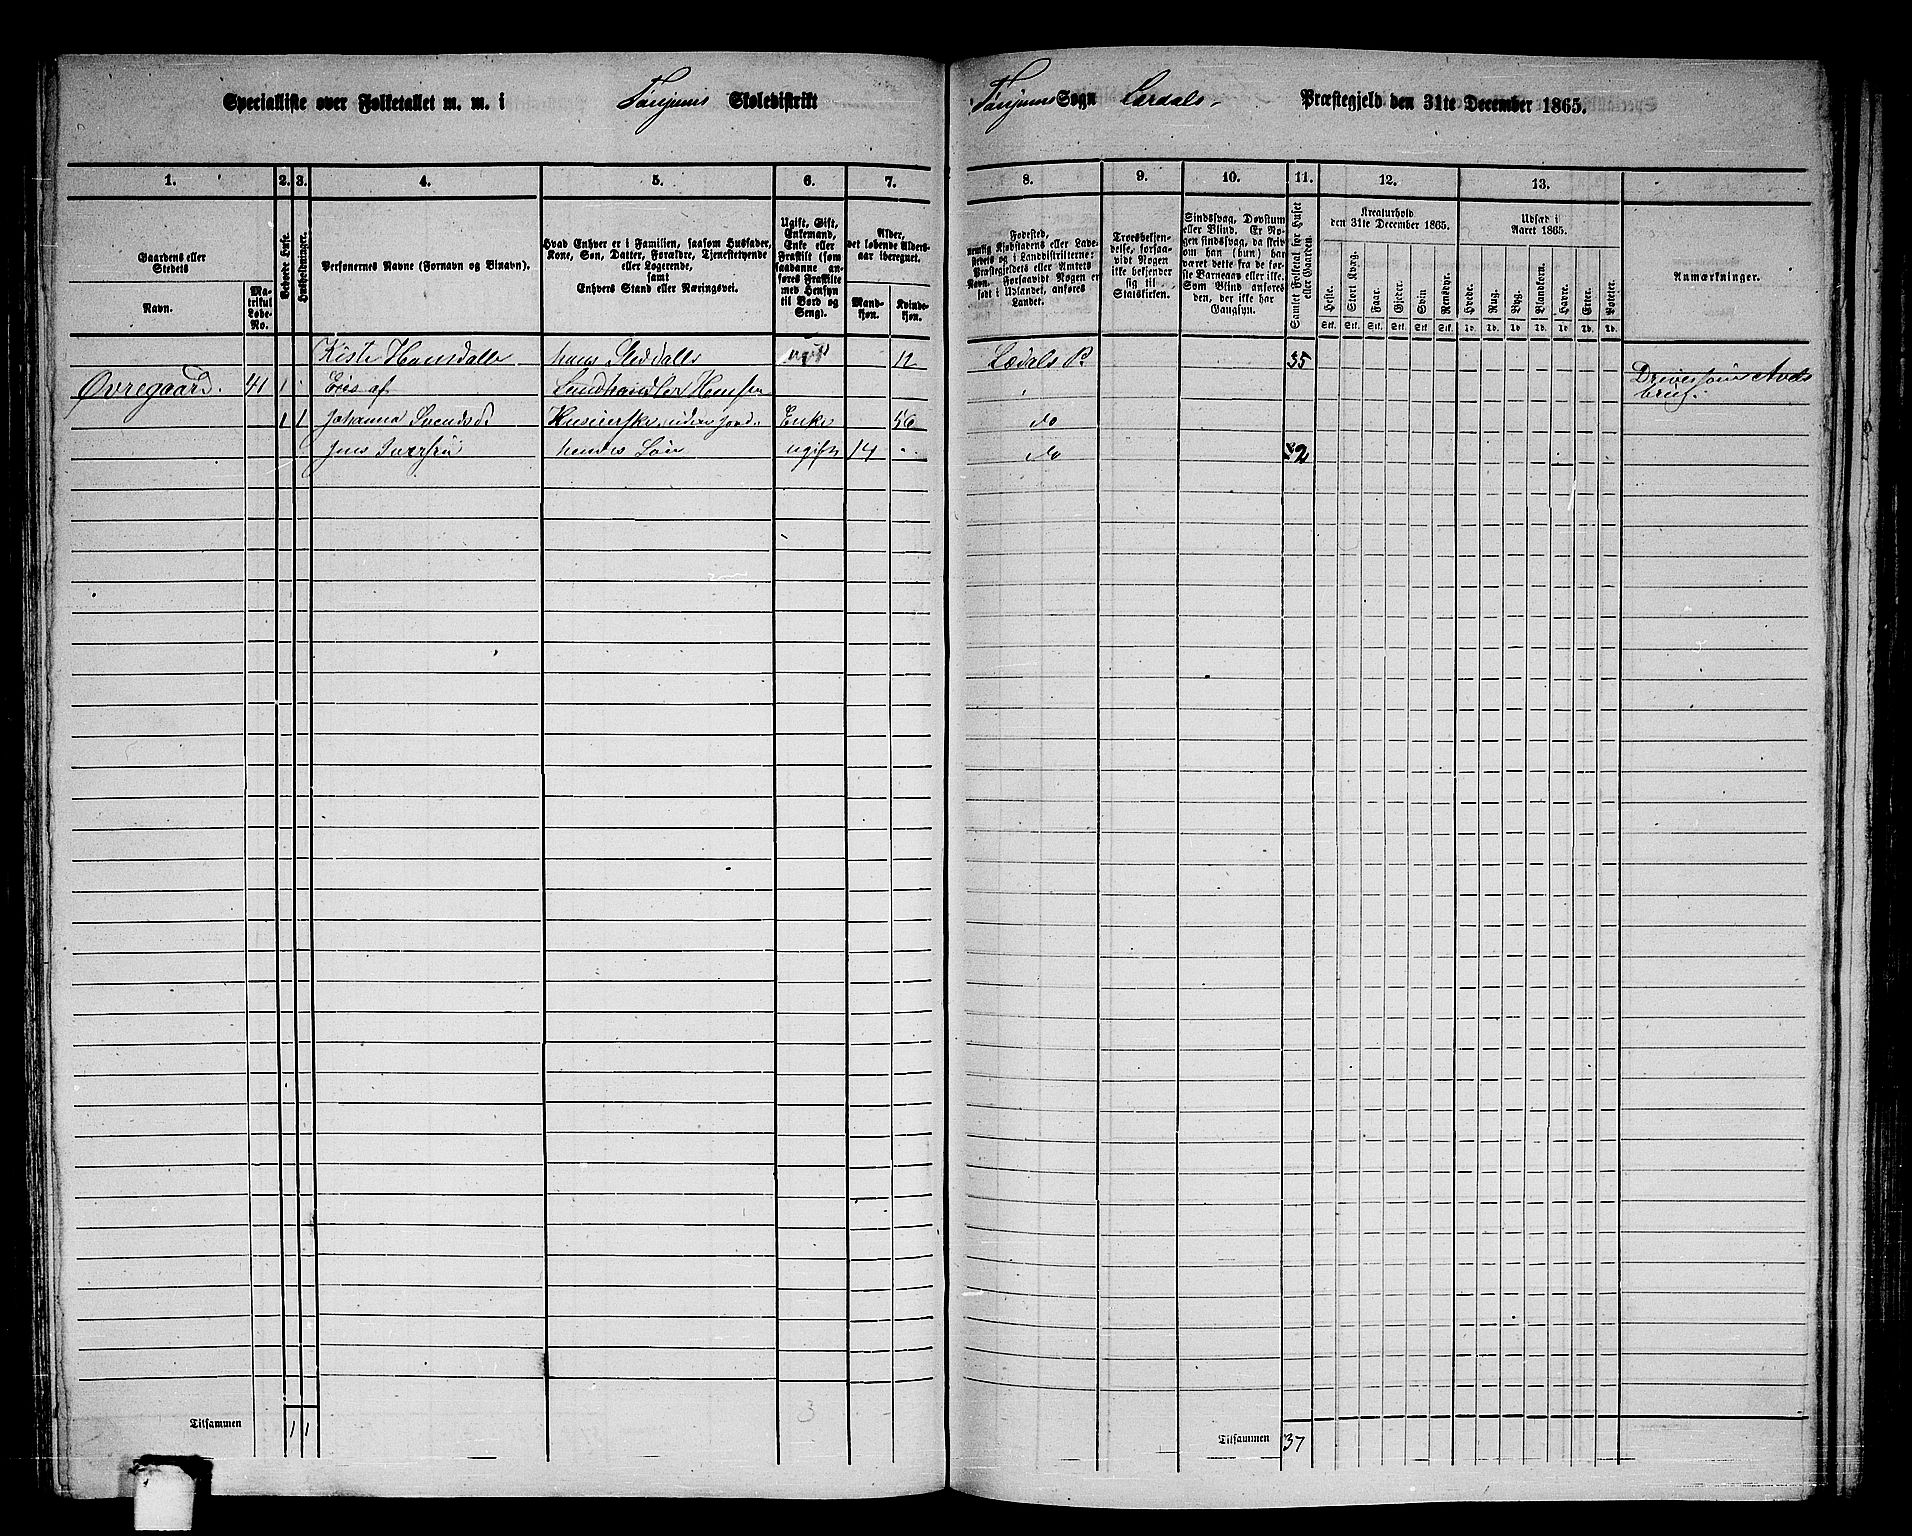 Specialliste over Folketallet m. m. i Tønjums Skoledistrikt
Tønjums Sogn Lærdals Præstegjeld den 31te December 1865.
1. 2. 3. 4. 5. 6. 7.
Gaardens eller Stedets
Navn.
Matrikul Løbe-No.
Beboede Huse.
Husholdninger.
Personernes Navne (Fornavn og Binavn).
Hvad Enhver er i Familien, saasom Husfader,
Kone, Søn, Datter, Forældre, Tjenestetyende
eller Logerende,
samt
Enhvers Stand eller Næringsvei.
Ugift, Gift,
Enkemand,
Enke eller
Fraskilt (som
saadanne an-
føres Fraskilte
med Hensyn
til Bord og
Seng).
Alder,
det løbende Alders-
aar iberegnet.
Mand-
kjøn.
Kvinde-
kjøn.
8. 9. 10. 11. 12. 13.
Fødested,
nemlig Kjøbstadens eller Lade-
stedets og i Landdistrikterne:
Præstegjeldets eller Amtets
Navn. Forsaavidt Nogen er
født i Udlandet, anføres
Landet.
Troesbekjen-
delse, forsaa-
vidt Nogen
ikke bekjender
sig til
Statskirken.
Sindssvag, Døvstum
eller Blind. Er No-
gen sindssvag, da skriv
om han (hun) har
været dette fra de før-
ste Barneaar eller ikke.
Som Blind anføres
den, der ikke har
Gangsyn.
Samlet Folketal for Huset
eller Gaarden.
Kreaturhold
den 31te December 1865.
Heste. Stort Kvæg. Faar. Gjeder. Svin Rensdyr.
Stk. Stk. Stk. Stk. Stk. Stk.
Udsæd i
Aaret 1865.
Hvede. Rug. Byg. Blandkorn. Havre. Erter. Poteter.
Td. Td. Td. Td. Td. Td. Td.
Anmærkninger.
ugift 12 Lædals P. 35
Øvregaard. 41 1 Eies af Landhandler
Drives som
1 1 Johanna Enke 56 do
Jens Iversen hendes Søn ugift 14 do 2
Tilsammen 1 1 3
Tilsammen 37